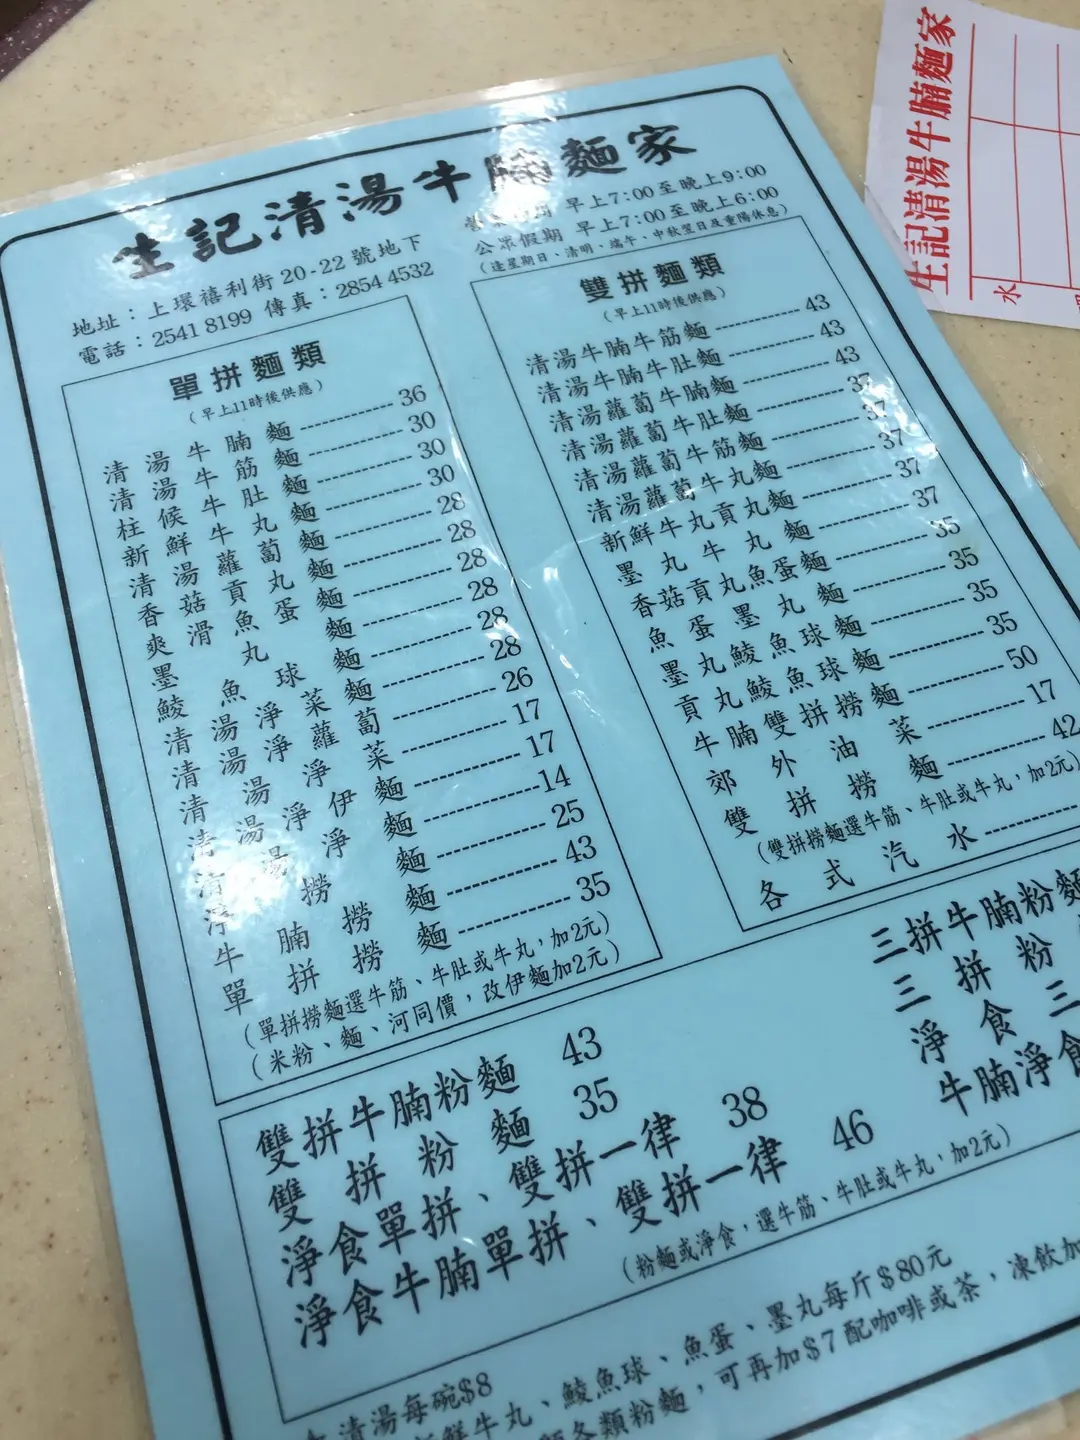 生記清湯牛腩麵家
地址：上環禧利街20-22號地下
電話：2541 8199 傳真：2854 4532
早上7:00至晚上9:00
公眾假期 早上7:00至晚上6:00
(逢星期日、清明、端午、中秋翌日及重陽休息)
單拼麵類
(早上11時後供應)
清湯牛腩麵 36
清湯牛筋麵 30
柱候牛肚麵 30
新鮮牛丸麵 30
清湯蘿蔔麵 28
香菇貢丸麵 28
爽滑魚蛋麵 28
墨丸麵 28
鯪魚球麵 28
清湯淨菜麵 28
清湯淨蘿蔔 26
清湯淨菜 17
清湯淨伊麵 17
清湯淨麵 14
淨撈麵 25
牛腩撈麵 43
單拼撈麵 35
(單拼撈麵選牛筋、牛肚或牛丸，加2元)
(米粉、麵、河同價，改伊麵加2元)
雙拼麵類
(早上11時後供應)
清湯牛腩牛筋麵 43
清湯牛腩牛肚麵 43
清湯蘿蔔牛腩麵 43
清湯蘿蔔牛肚麵 37
清湯蘿蔔牛筋麵 37
清湯蘿蔔牛丸麵 37
新鮮牛丸貢丸麵 37
墨丸牛丸麵 37
香菇貢丸魚蛋麵 35
魚蛋墨丸麵 35
墨丸鯪魚球麵 35
貢丸鯪魚球麵 35
牛腩雙拼撈麵 50
郊外油菜 17
雙拼撈麵 42
(雙拼撈麵選牛筋、牛肚或牛丸，加2元)
各式汽水
雙拼牛腩粉麵 43
雙拼粉麵 35
淨食單拼、雙拼一律 38
淨食牛腩單拼、雙拼一律 46
(粉麵或淨食，選牛筋、牛肚或牛丸，加2元)
三拼牛腩粉麵
三拼粉
淨食三
牛腩淨食
清湯每碗$8
鮮牛丸、鯪魚球、魚蛋、墨丸每斤$80元
各類粉麵，可再加$7配咖啡或茶，凍飲加
生記清湯牛腩麵家
水